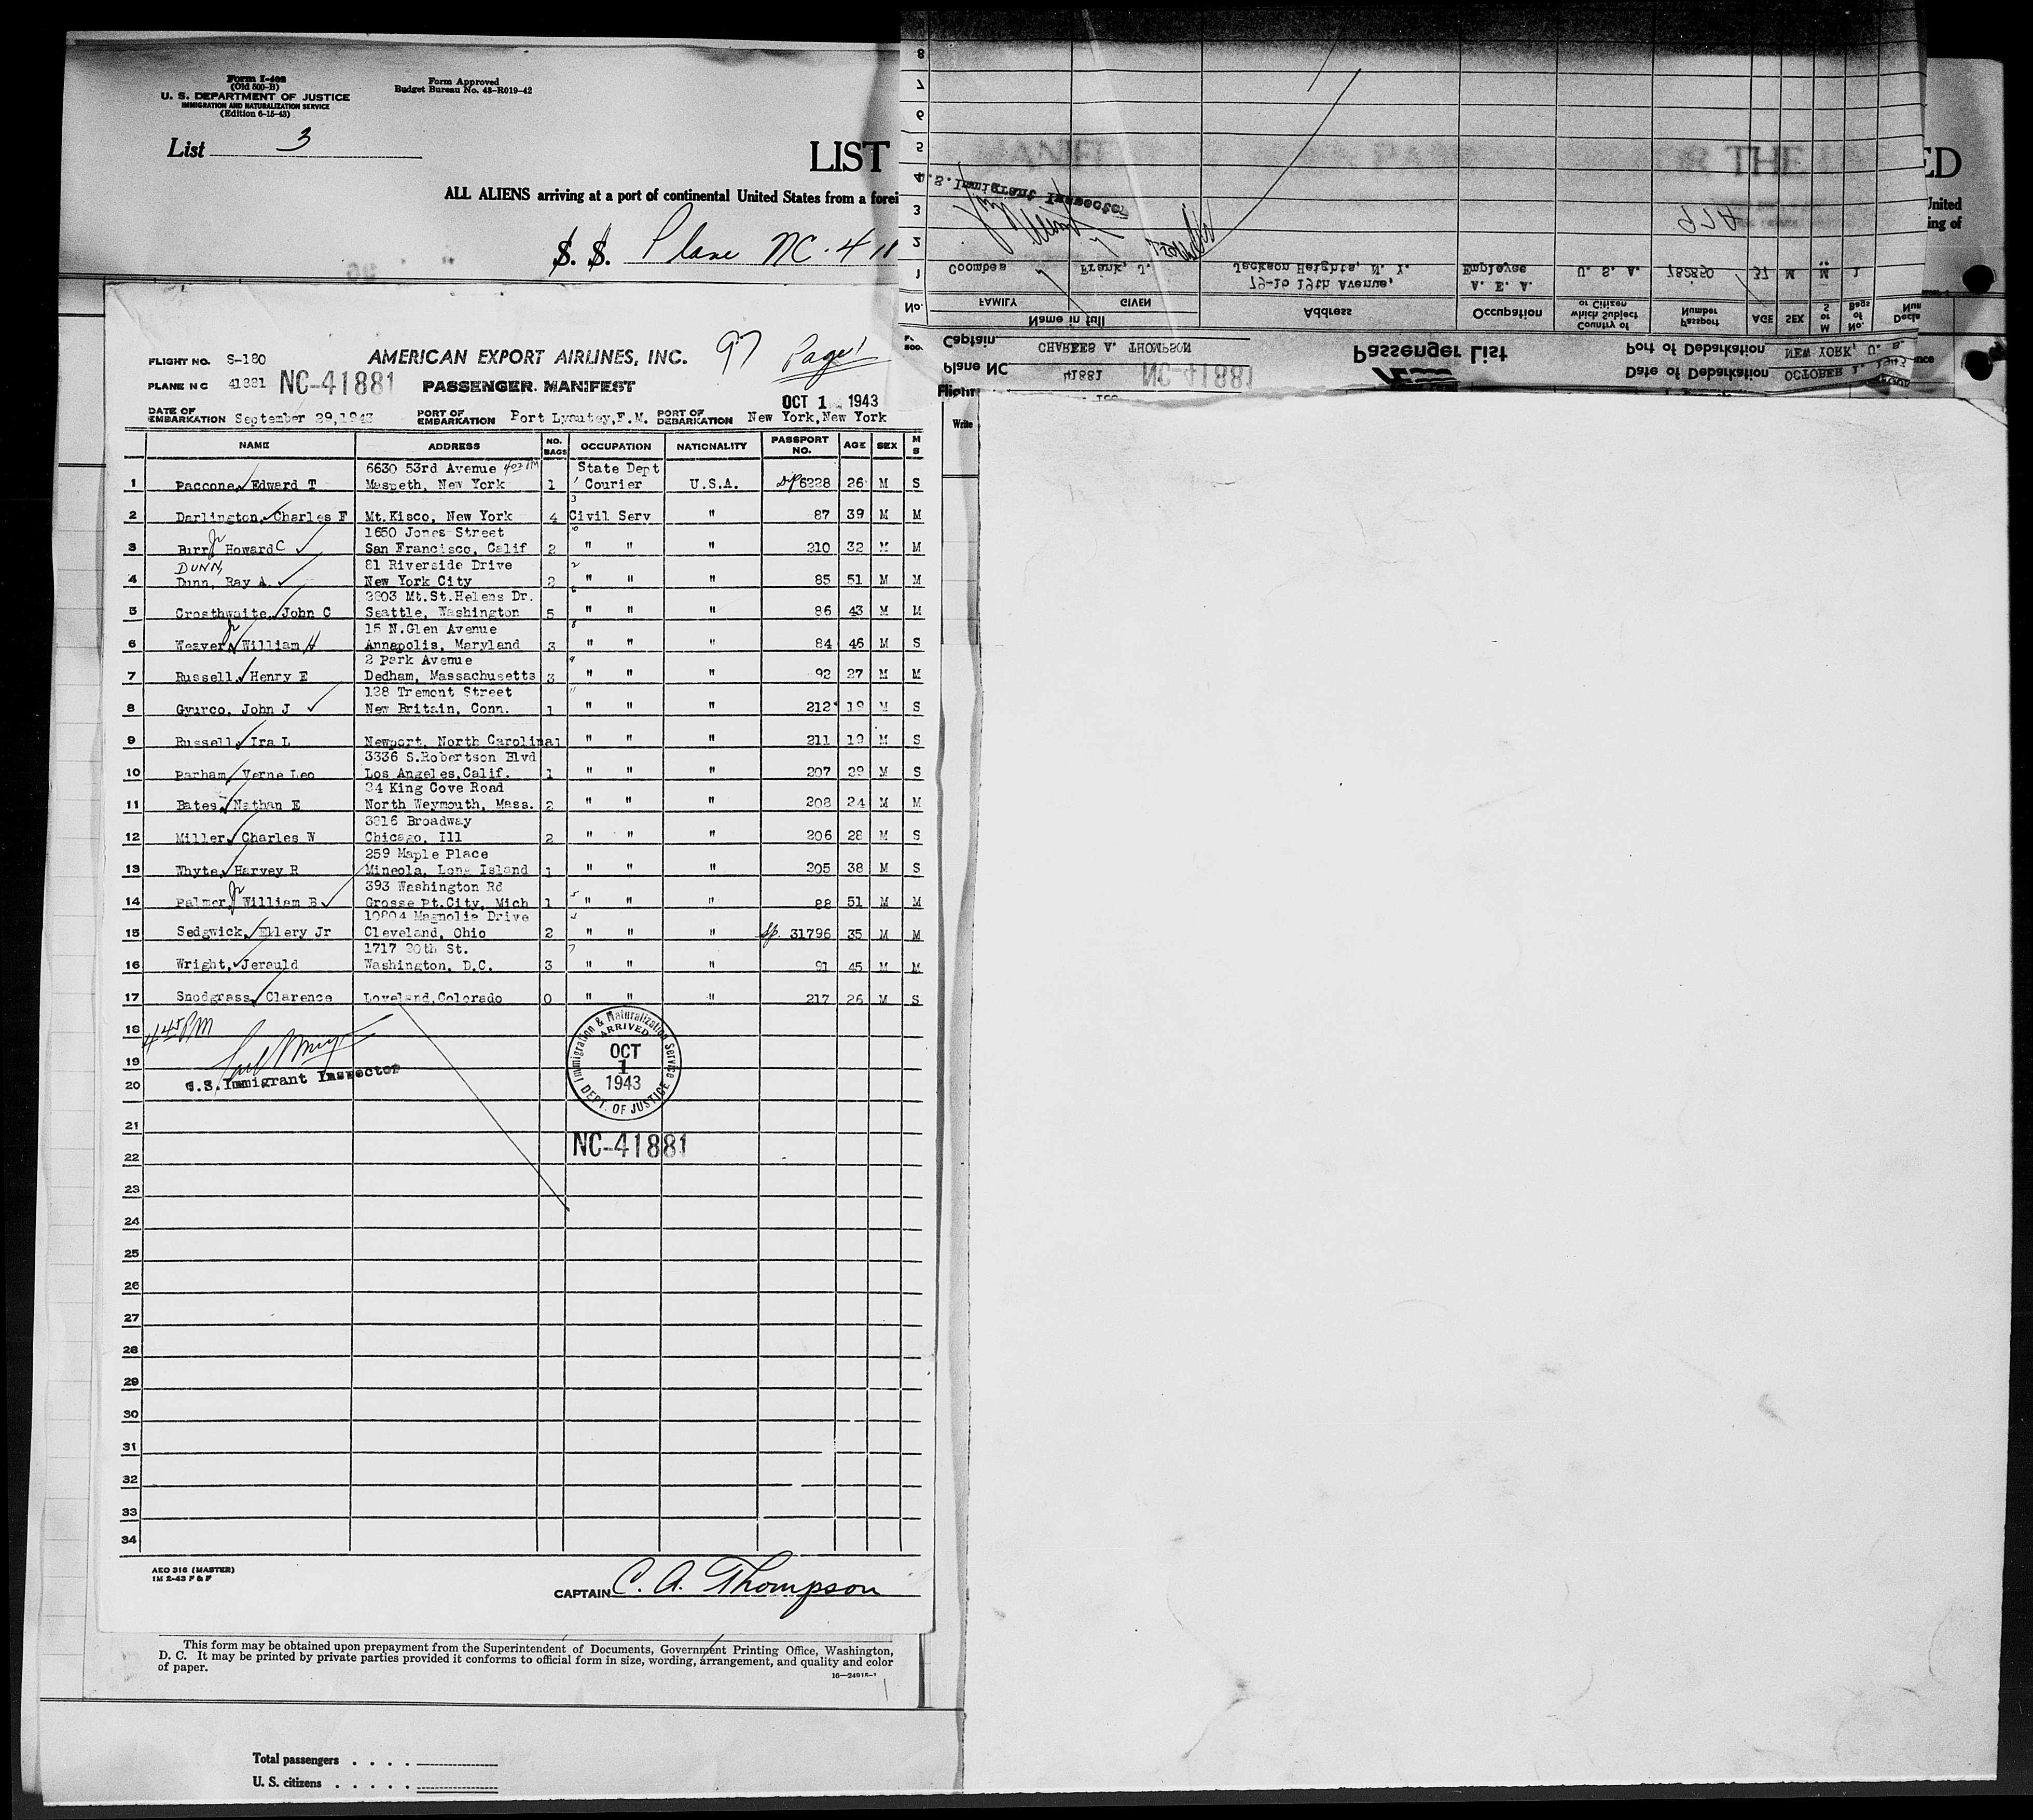 Form I-402
(Old 500-B)
U. S. DEPARTMENT OF JUSTICE
IMMIGRATION AND NATURALIZATION SERVICE
(Edition 6-15-43)
Form Approved
Budget Bureau No. 43-R019-42
List 3
LIST
ALL ALIENS arriving at a port of continental United States from a forei
S. S. Plane NC-41
FLIGHT NO. S-180
AMERICAN EXPORT AIRLINES, INC. 97 Page 1
PLANE NC 41881 NC-41881 PASSENGER MANIFEST
OCT 1 1943
DATE OF EMBARKATION September 29,1943 PORT OF EMBARKATION Port Lyautey,F.M. PORT OF DEBARKATION New York,New York
NAME ADDRESS NO. BAGS OCCUPATION NATIONALITY PASSPORT NO. AGE SEX M S
6630 53rd Avenue State Dept
1 Paccone, Edward T Maspeth, New York 1 Courier U.S.A. DP 6228 26 M S
2 Darlington, Charles F Mt.Kisco, New York 4 Civil Serv " 87 39 M M
1650 Jones Street
3 Birr, Jr Howard C San Francisco, Calif 2 " " " 210 32 M M
DUNN, 81 Riverside Drive
4 Dunn, Ray A. New York City 2 " " " 85 51 M M
2803 Mt.St.Helens Dr.
5 Crosthwaite, John C Seattle, Washington 5 " " " 86 43 M M
15 N.Glen Avenue
6 Weaver, Jr William H Annapolis, Maryland 3 " " " 84 46 M S
2 Park Avenue
7 Russell, Henry E Dedham, Massachusetts 3 " " " 92 27 M M
128 Tremont Street
8 Gyurco, John J New Britain, Conn. 1 " " " 212 19 M S
9 Russell, Ira L Newport, North Carolina 1 " " " 211 19 M S
3336 S.Robertson Blvd
10 Parham, Verne Leo Los Angeles,Calif. 1 " " " 207 29 M S
24 King Cove Road
11 Bates, Nathan E North Weymouth, Mass. 2 " " " 208 24 M M
3916 Broadway
12 Miller, Charles W Chicago, Ill 2 " " " 206 28 M S
259 Maple Place
13 Whyte, Harvey R Mineola, Long Island 1 " " " 205 38 M S
393 Washington Rd
14 Palmer, Jr William B Grosse Pt.City, Mich 1 " " " 88 51 M M
10804 Magnolia Drive
15 Sedgwick, Ellery Jr Cleveland, Ohio 2 " " " Sp. 31796 35 M M
1717 20th St.
16 Wright, Jerauld Washington, D.C. 3 " " " 91 45 M M
17 Snodgrass, Clarence Loveland,Colorado 0 " " " 217 26 M S
18
4 45 PM
19
20 U.S.Immigrant Inspector
21
22
23
24
25
26
27
28
29
30
31
32
33
34
Immigration & Naturalization Service
ARRIVED
OCT
1
1943
DEPT. OF JUSTICE
NC-41881
AEO 316 (MASTER)
1M 2-43 F & F
CAPTAIN C. A. Thompson
This form may be obtained upon prepayment from the Superintendent of Documents, Government Printing Office, Washington,
D. C. It may be printed by private parties provided it conforms to official form in size, wording, arrangement, and quality and color
of paper.
Total passengers . . . .
U. S. citizens . . . . .
Flight
Plane NC 41881 NC-41881 Passenger List Date of Debarkation OCTOBER 1, 1943
Captain CHARLES A. THOMPSON Port of Debarkation NEW YORK, U. S.
No. Name in full FAMILY GIVEN Address Occupation Country of which Subject or Citizen Passport Number AGE SEX M or S No. of Bags
1 Coombes Frank, J. 79-16 19th Avenue, Jackson Heights, N. Y. A. E. A. Employee U. S. A. 782850 37 M M 1
2
3
4
U.S.Immigrant Inspector
5
6
7
8
ED
United
ing of
nce
Write